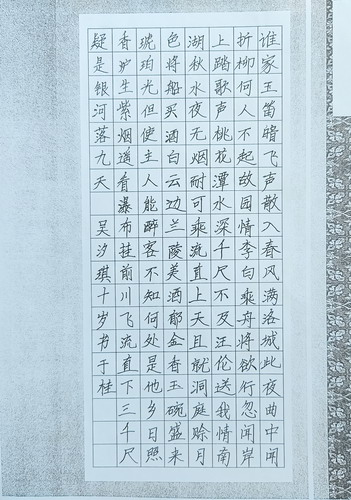 谁家玉笛暗飞声散入春风满洛城此夜曲中闻
折柳何人不起故园情李白乘舟将欲行忽闻岸
上踏歌声桃花潭水深千尺不及汪伦送我情南
湖秋水夜无烟耐可乘流直上天且就洞庭赊月
色将船买酒白云边兰陵美酒郁金香玉碗盛来
琥珀光但使主人能醉客不知何处是他乡日照
香炉生紫烟遥看瀑布挂前川飞流直下三千尺
疑是银河落九天 吴汐琪十岁书于桂